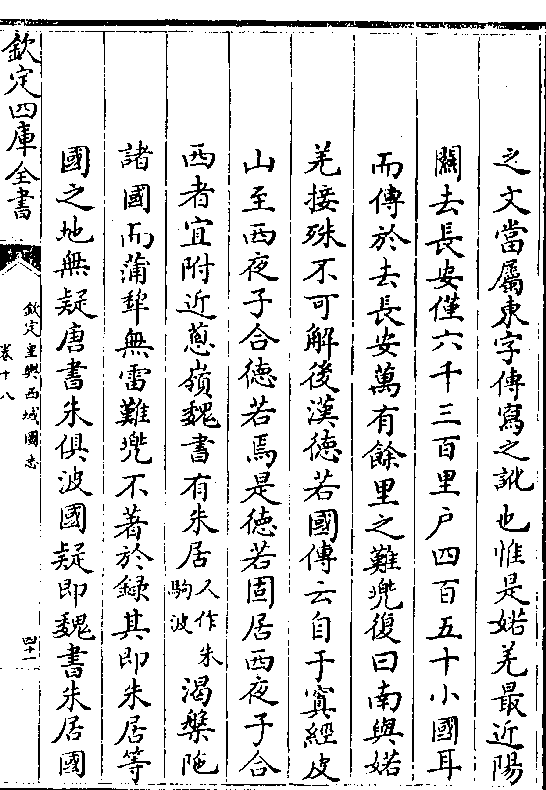 之文當屬東字傳寫之訛也惟是婼羌最近陽
關去長安僅六千三百里户四百五十小國耳
而傳於去長安萬有餘里之難兠復曰南與婼
羌接殊不可解後漢德若國傳云自于寘經皮
山至西夜子合德若焉是德若固居西夜子合
西者宜附近蔥嶺魏書有朱居又作朱駒波渴槃陁
諸國而蒲犂無雷難兠不著於録其即朱居等
國之地無疑唐書朱俱波國疑即魏書朱居國
欽定四庫全書
欽定皇輿西域圖志
卷十八
四十一